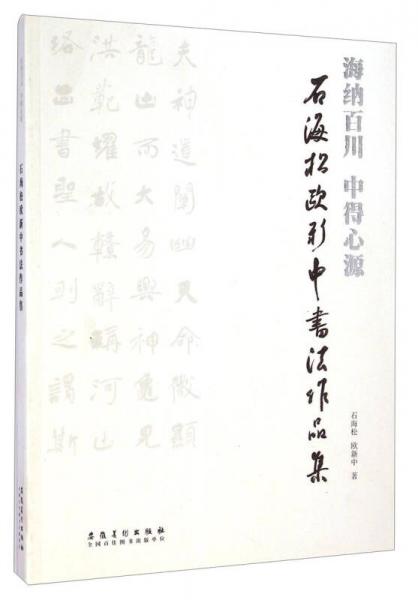 海纳百川 中得心源
石海松欧新中書法作品集
石海松 欧新中 著
夫神道闡幽天命微顯
龍出而大易興神龜見
洪範耀故繫辭稱河出
洛出書聖人則之謂斯
安徽美术出版社
全国百佳图书出版单位
石海松欧新中书法作品集